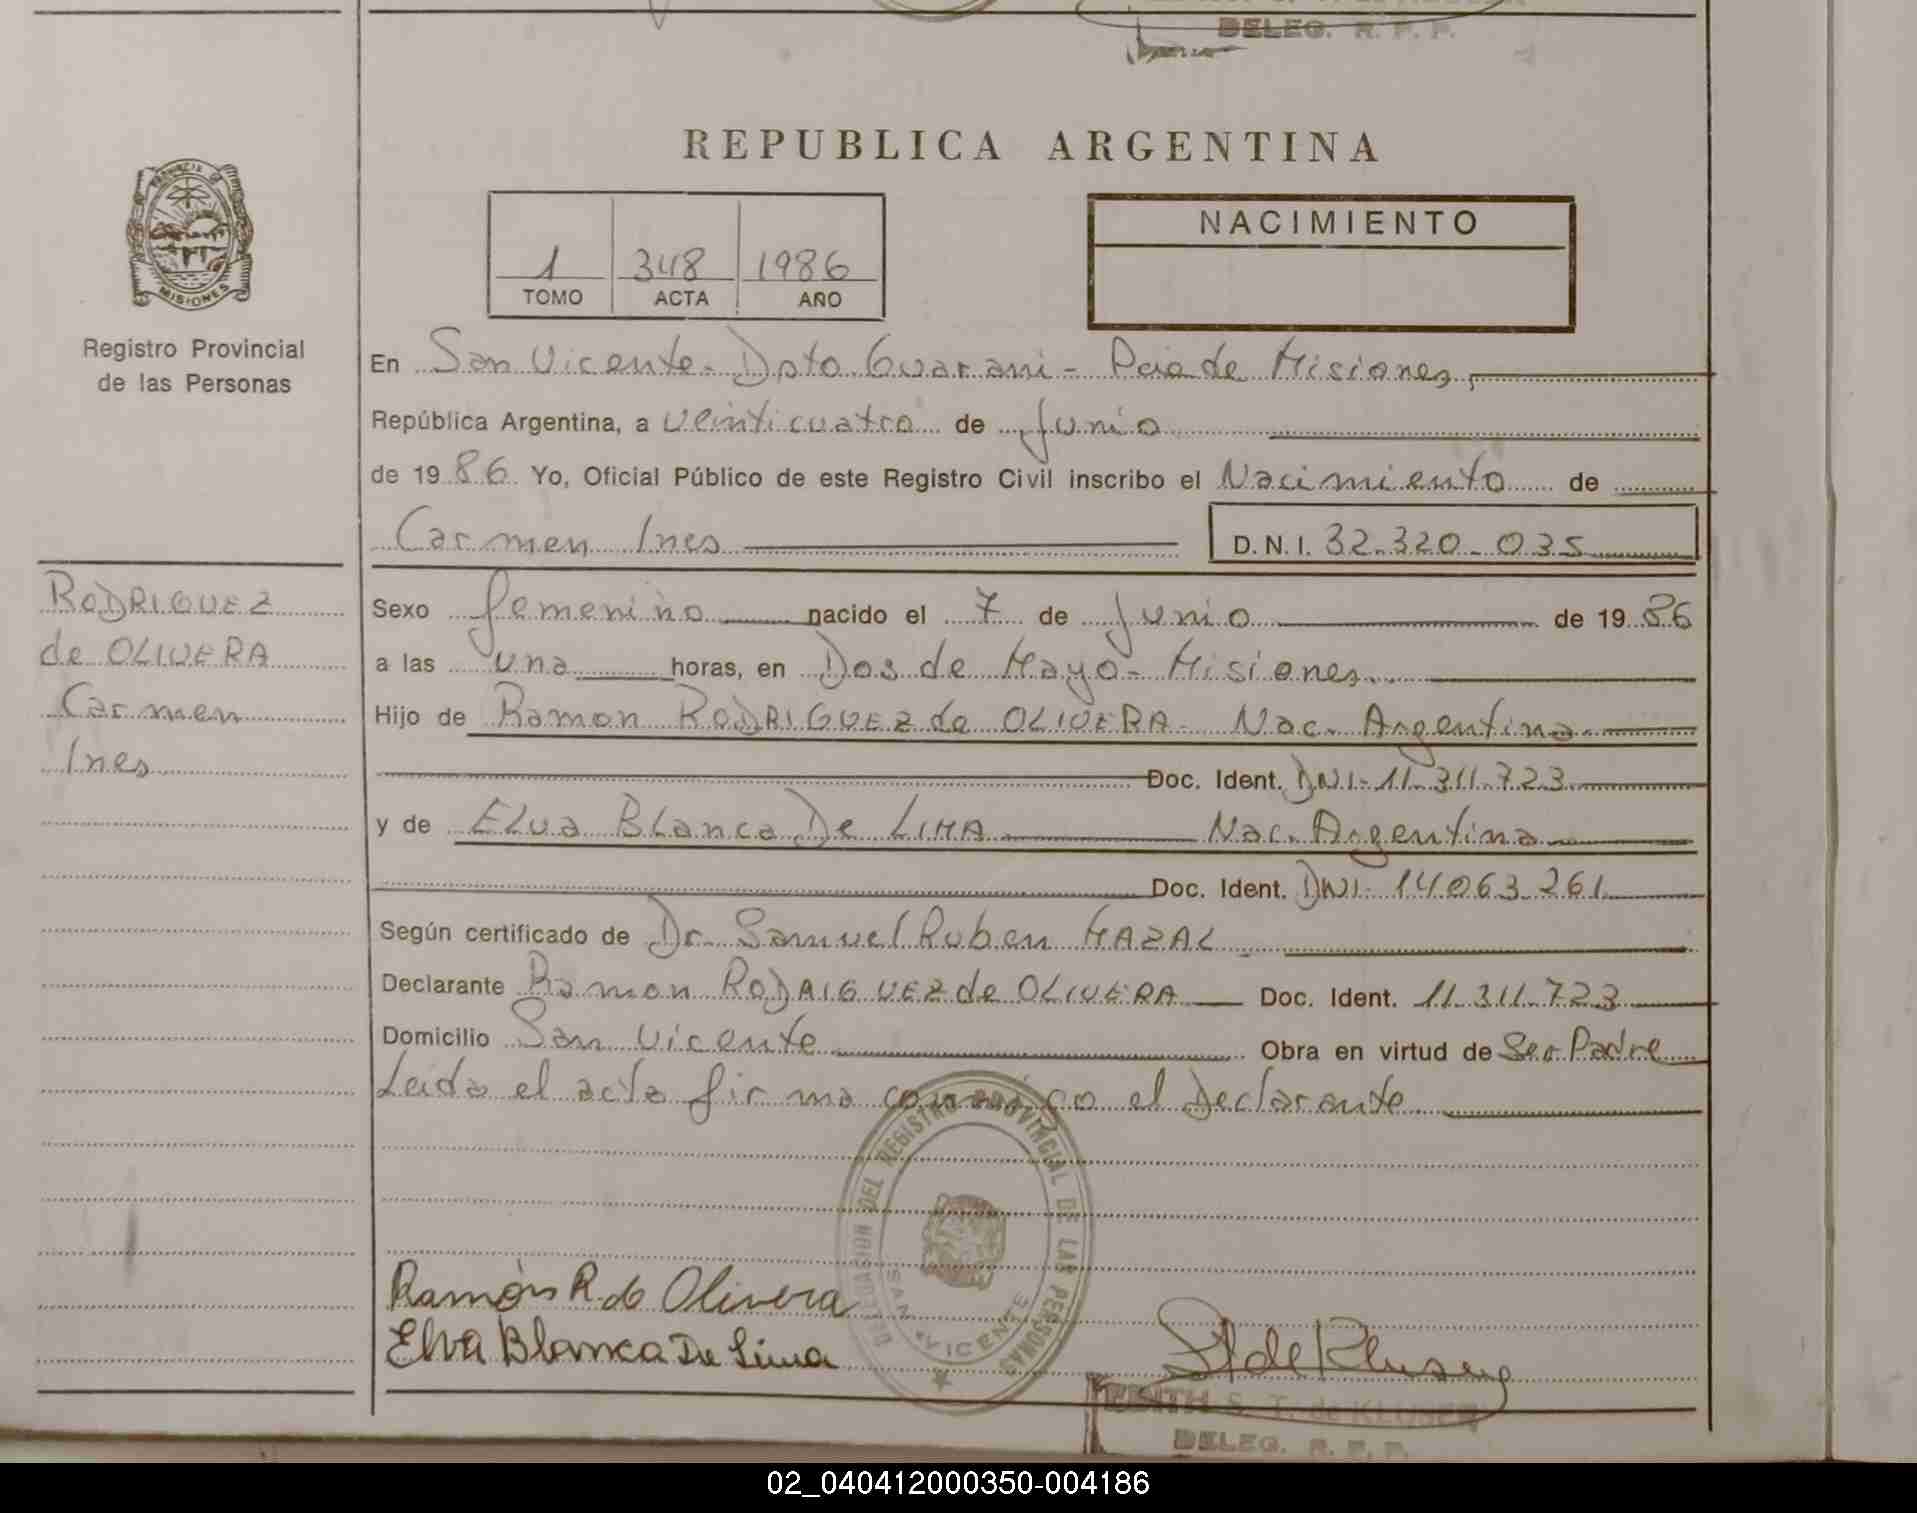 DELEG. R. P. P.
REPUBLICA ARGENTINA
PROVINCIA DE
MISIONES
Registro Provincial
de las Personas
1 348 1986
TOMO ACTA AÑO
NACIMIENTO
En San Vicente - Dpto Guarani - Pcia de Misiones,
República Argentina, a veinticuatro de Junio
de 1986 Yo, Oficial Público de este Registro Civil inscribo el Nacimiento de
Carmen Ines D.N.I. 32.320.035
RODRIGUEZ
de OLIVERA
Carmen
Ines
Sexo femenino nacido el 7 de Junio de 1986
a las una horas, en Dos de Mayo - Misiones
Hijo de Ramon RODRIGUEZ de OLIVERA - Nac. Argentina
Doc. Ident. DNI - 11.311.723
y de ELva BLanca De LIMA Nac. Argentina
Doc. Ident. DNI - 14.063.261
Según certificado de Dr. Samuel Ruben MAZAL
Declarante Ramon RODRIGUEZ de OLIVERA Doc. Ident. 11.311.723
Domicilio San Vicente Obra en virtud de Ser Padre
Leida el acta firma conmigo el Declarante
DELEGACION DEL REGISTRO PROVINCIAL DE LAS PERSONAS
SAN VICENTE
Ramón R. de Olivera
Elva Blanca De Lima
EDITH S. T. de KLUSER
DELEG. R. P. P.
02_040412000350-004186